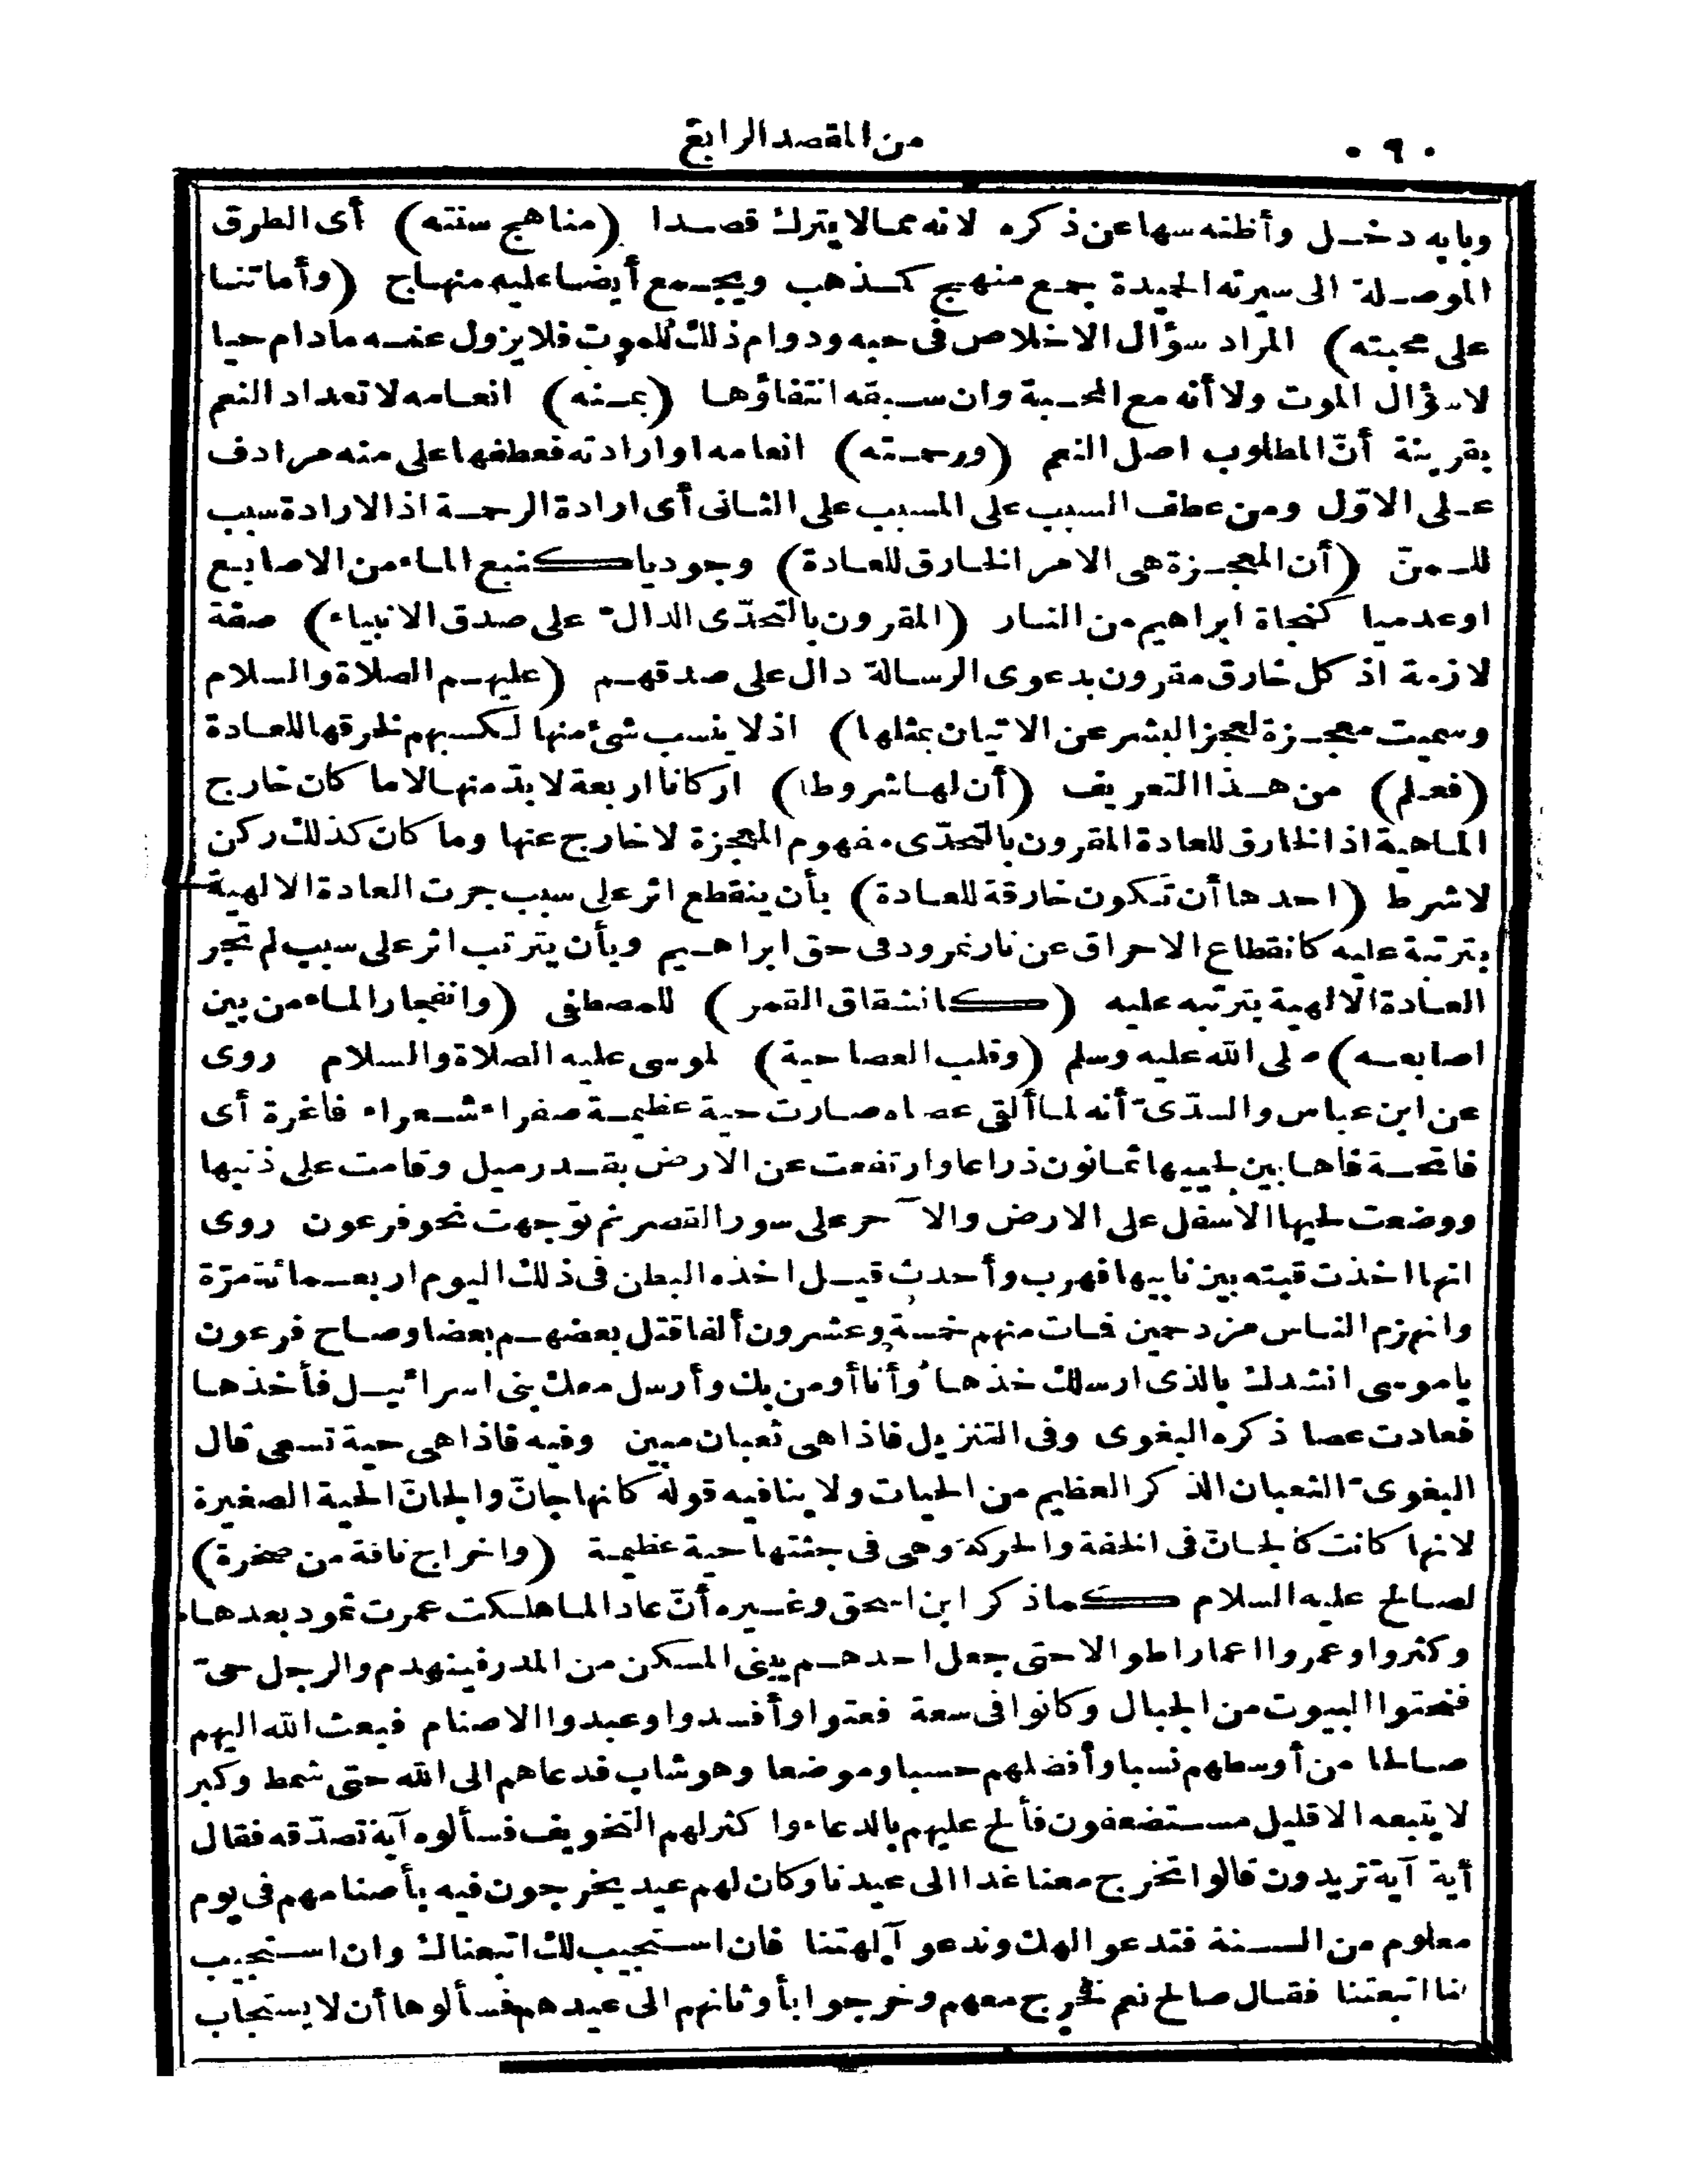 ٩٠ من المقصد الرابع
وبابه دخل وأظنه سها عن ذكره لانه مما لا يترك قصدا (مناهج سنته) أى الطرق
الموصلة الى سيرته الحميدة جمع منهج كمذهب ويجمع أيضا عليه منهاج (وأماتنا
على محبته) المراد سؤال الاخلاص فى حبه ودوام ذلك للموت فلا يزول عنه مادام حيا
لا سؤال الموت ولا أنه مع المحبة وان سبقه انتفاؤها (بمنه) انعامه لا تعداد النعم
بقرينة أنّ المطلوب اصل النعم (ورحمته) انعامه او ارادته فعطفها على منه مرادف
على الاوّل ومن عطف السبب على المسبب على الثانى أى ارادة الرحمة اذ الارادة سبب
للمنّ (أن المعجزة هى الامر الخارق للعادة) وجوديا كنبع الماء من الاصابع
او عدميا كنجاة ابراهيم من النار (المقرون بالتحدّى الدالّ على صدق الانبياء) صفة
لازمة اذ كل خارق مقرون بدعوى الرسالة دال على صدقهم (عليهم الصلاة والسلام
وسميت معجزة لعجز البشر عن الاتيان بمثلها) اذ لا ينسب شئ منها لكسبهم لخرقها للعادة
(فعلم) من هذا التعريف (أن لها شروطا) اركانا اربعة لا بدّ منها لا ما كان خارج
الماهية اذ الخارق للعادة المقرون بالتحدّى مفهوم المعجزة لا خارج عنها وما كان كذلك ركن
لا شرط (احدها أن تكون خارقة للعادة) بأن ينقطع اثر على سبب جرت العادة الالهية
بترتبه عليه كانقطاع الاحراق عن نار نمرود فى حق ابراهيم وبأن يترتب اثر على سبب لم تجر
العادة الالهية بترتبه عليه (كانشقاق القمر) للمصطفى (وانفجار الماء من بين
اصابعه) صلى الله عليه وسلم (وقلب العصا حية) لموسى عليه الصلاة والسلام روى
عن ابن عباس والسدّىّ أنه لما ألقى عصاه صارت حية عظيمة صفراء شعراء فاغرة أى
فاتحة فاها بين لحييها ثمانون ذراعا وارتفعت عن الارض بقدر ميل وقامت على ذنبها
ووضعت لحيها الاسفل على الارض والآخر على سور القصر ثم توجهت نحو فرعون روى
انها اخذت قبته بين نابيها فهرب وأحدث قيل اخذه البطن فى ذلك اليوم اربعمائة مرّة
وانهزم الناس مزدحمين فمات منهم خمسة وعشرون ألفا قتل بعضهم بعضا وصاح فرعون
يا موسى انشدك بالذى ارسلك خذها وأنا أومن بك وأرسل معك بنى اسرائيل فأخذها
فعادت عصا ذكره البغوى وفى التنزيل فاذا هى ثعبان مبين وفيه فاذا هى حية تسعى قال
البغوىّ الثعبان الذكر العظيم من الحيات ولا ينافيه قوله كانها جانّ والجانّ الحية الصغيرة
لانها كانت كالجانّ فى الخفة والحركة وهى فى جثتها حية عظيمة (واخراج ناقة من صخرة)
لصالح عليه السلام كما ذكر ابن اسحق وغيره أنّ عادا لما هلكت عمرت ثمود بعدها
وكثروا وعمروا اعمارا طوالا حتى جعل احدهم يبنى المسكن من المدر فينهدم والرجل حىّ
فنحتوا البيوت من الجبال وكانوا فى سعة فعتوا وأفسدوا وعبدوا الاصنام فبعث الله اليهم
صالحا من أوسطهم نسبا وأفضلهم حسبا وموضعا وهو شاب فدعاهم الى الله حتى شمط وكبر
لا يتبعه الا قليل مستضعفون فألح عليهم بالدعاء واكثر لهم التخويف فسألوه آية تصدّقه فقال
أية آية تريدون قالوا تخرج معنا غدا الى عيدنا وكان لهم عيد يخرجون فيه بأصنامهم فى يوم
معلوم من السنة فتدعو الهك وندعو آلهتنا فان استجيب لك اتبعناك وان استجيب
لنا اتبعتنا فقال صالح نعم فخرج معهم وخرجوا بأوثانهم الى عيدهم فسألوها أن لا يستجاب